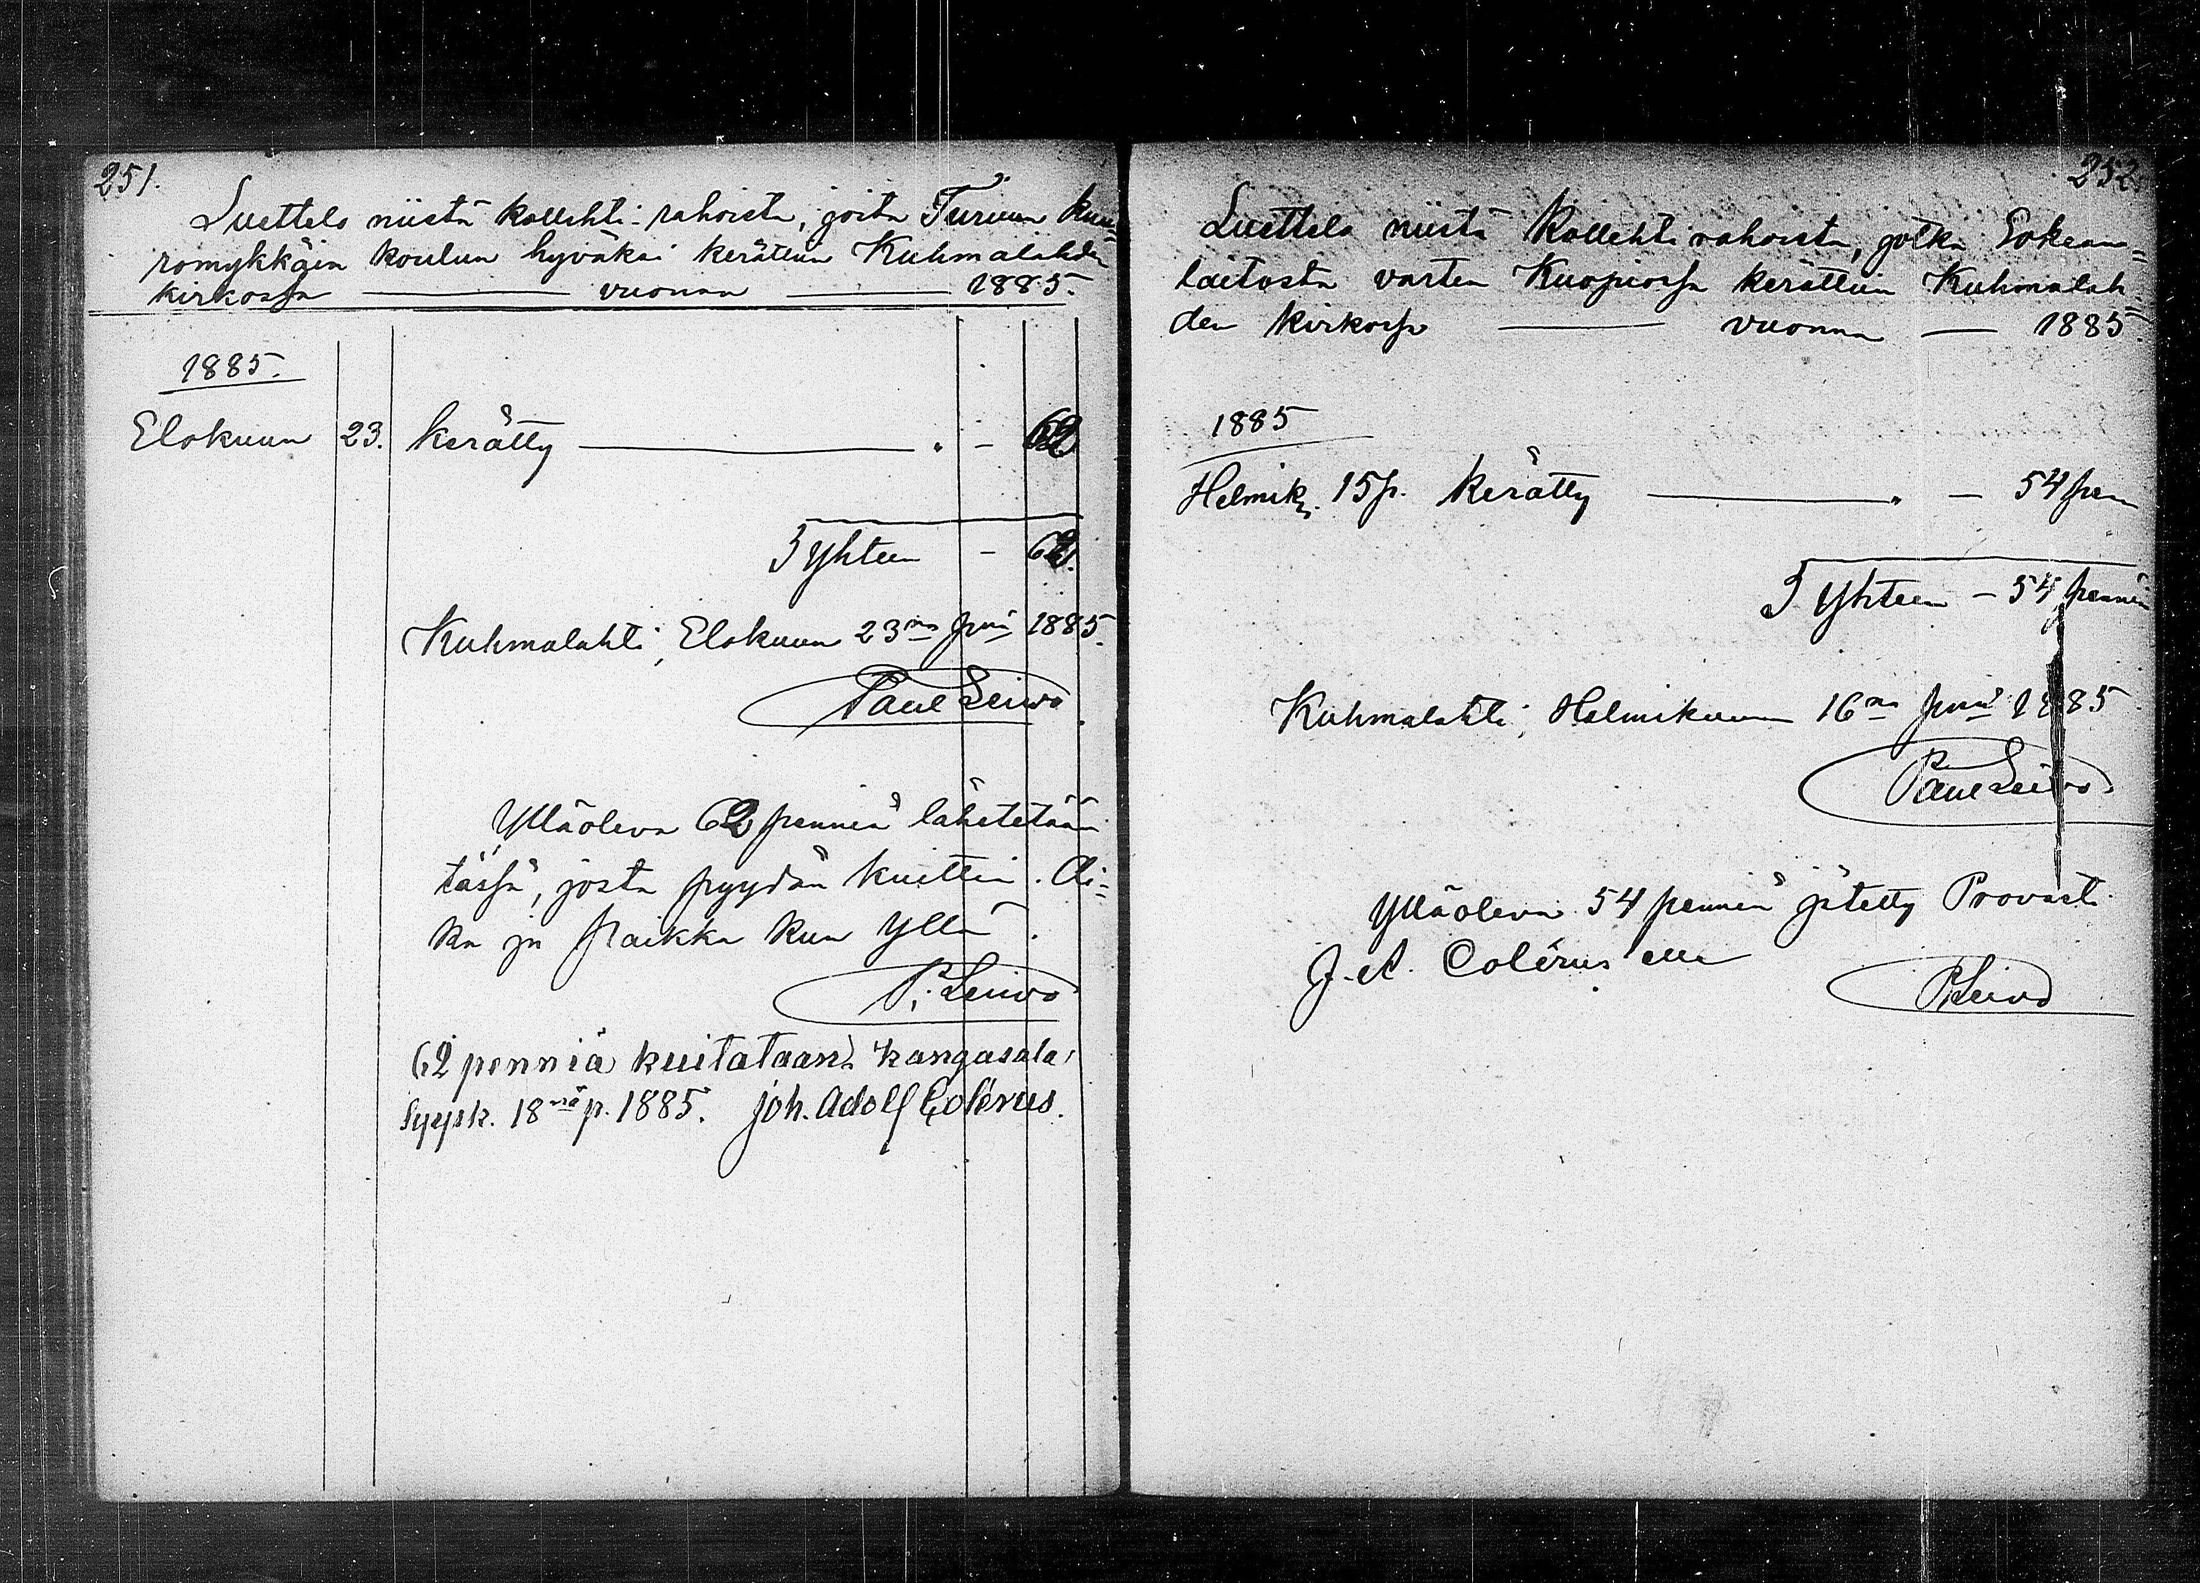 251.
Luettelo niistä kollehti-rahoista, joita Turuun kuu-
romykkäin koulun hyväksi kerättiin Kuhmalahden
kirkossa — vuonna — 1885.
1885.
Elokuun 23. kerätty — " - 62
Yhteen - 62.
Kuhmalahti, Elokuun 23na pnä 1885.
Paul Leivo
Ylläoleva 62 penniä lähetetään
tässä, josta pyydän kuittin. Ai=
ka ja paikka kun yllä.
P. Leivo
62 penniä kuitataan. Kangasala,
Syysk. 18na p. 1885. Joh. Adolf Colérus.
252.
Luettelo niistä kollehti rahoista, jotka Sokeain=
laitosta varten Kuopiossa kerättiin Kuhmalah=
den kirkossa — vuonna — 1885.
1885
Helmik. 15 p. kerätty — " — 54 pen
Yhteen - 54 penniä
Kuhmalahti, Helmikuun 16na pnä 1885.
Paul Leivo
Ylläoleva 54 penniä jätetty Provasti
J. A. Colérus'elle
P. Leivo